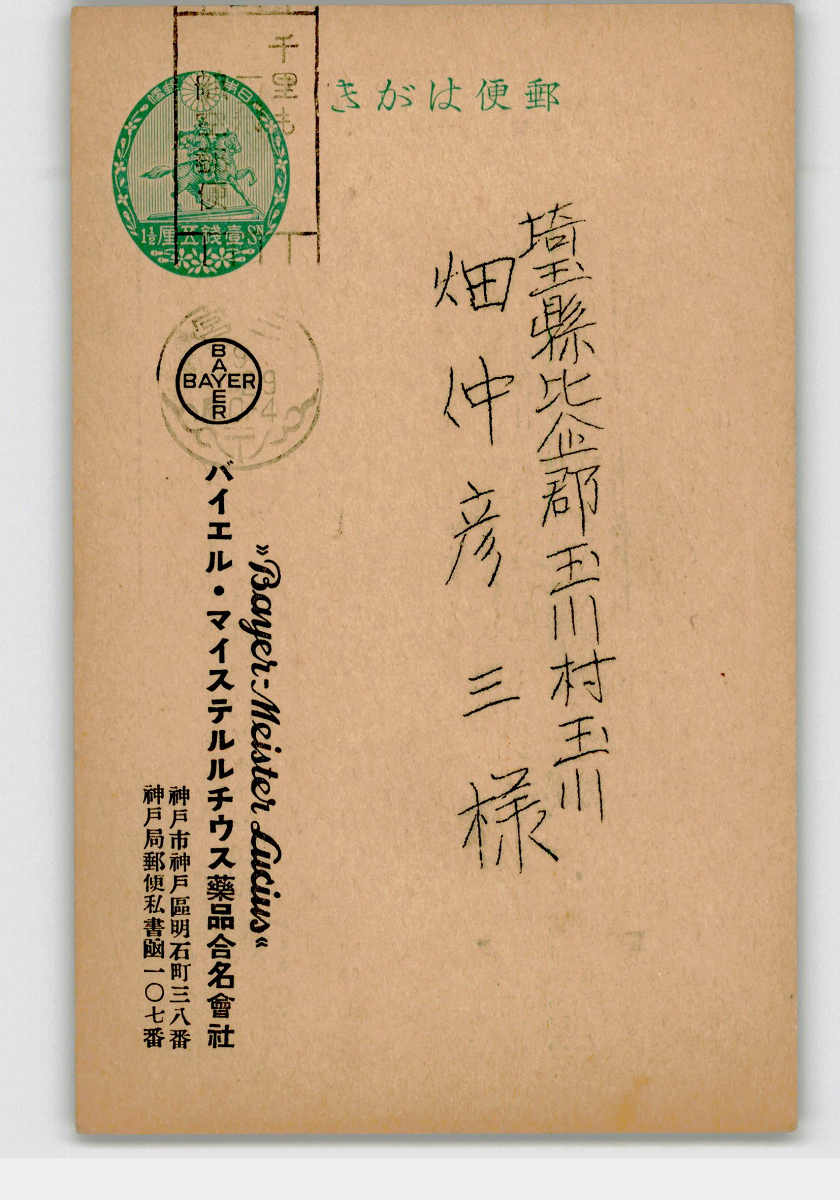 郵便はがき
日本郵便
壹錢五厘
1½ SN
千里も
航空郵便
埼玉縣比企郡玉川村玉川
畑仲彦三様
三宮
BAYER
BAYER
"Bayer-Meister Lucius"
バイエル・マイステルルチウス藥品合名會社
神戸市神戸區明石町三八番
神戸局郵便私書凾一〇七番